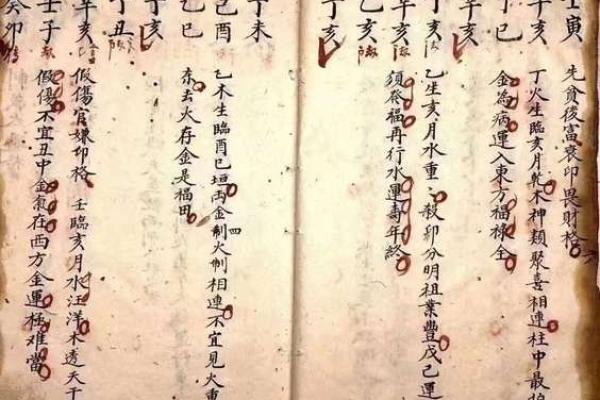 壬寅 先貧後富衰印畏財格
辛亥 丁火生臨亥月乾木神類聚喜相連柱中最
丁巳 金為病運入東方福祿全
辛亥
亥 乙生亥月水重重殺印分明祖業豐戊己運
辛亥 須發福再行水運壽年終
乙亥
丁亥
丁未
己酉 乙木生臨酉巳垣丙金制火制相連不宜見火重
乙巳 東去火存金是福田
亥
丁丑
辛亥 假傷官嫌印格 壬臨亥月水汪洋木透天干
壬子 假傷不宜丑中金氣在西方金運極难當
癸卯